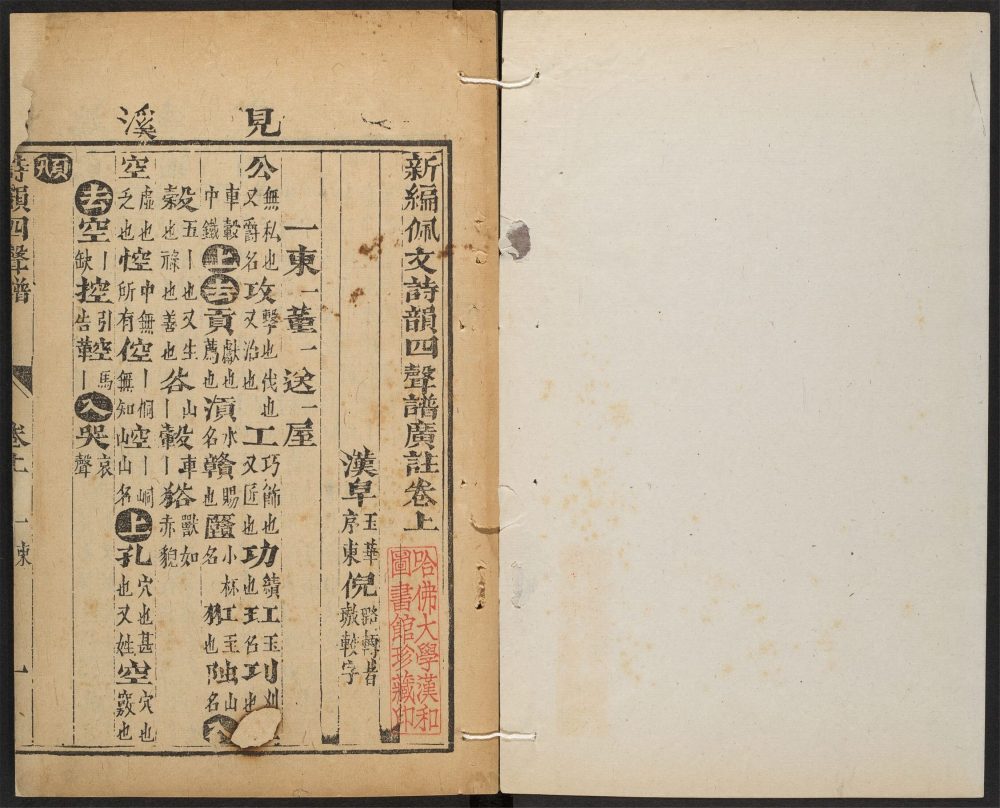 見
溪
新編佩文詩韻四聲譜廣註卷上
漢皐玉華序東倪璐轉著璈乾字
哈佛大學漢和圖書館珍藏印
一東一董一送一屋
公無私也又爵名攻擊也伐也又治也工巧飾也又匠也功績也
車轂中鐵上去貢獻也薦也澒水名贛賜也
穀五丨也又生也祿也善也谷山丨轂車丨
空虛也乏也悾中無所有倥丨侗無知空丨峒山山名上孔穴也甚也又姓空穴也竅也
去空丨缺控引丨告鞚馬丨入哭哀聲
詩韻四聲譜
卷上
一東
一